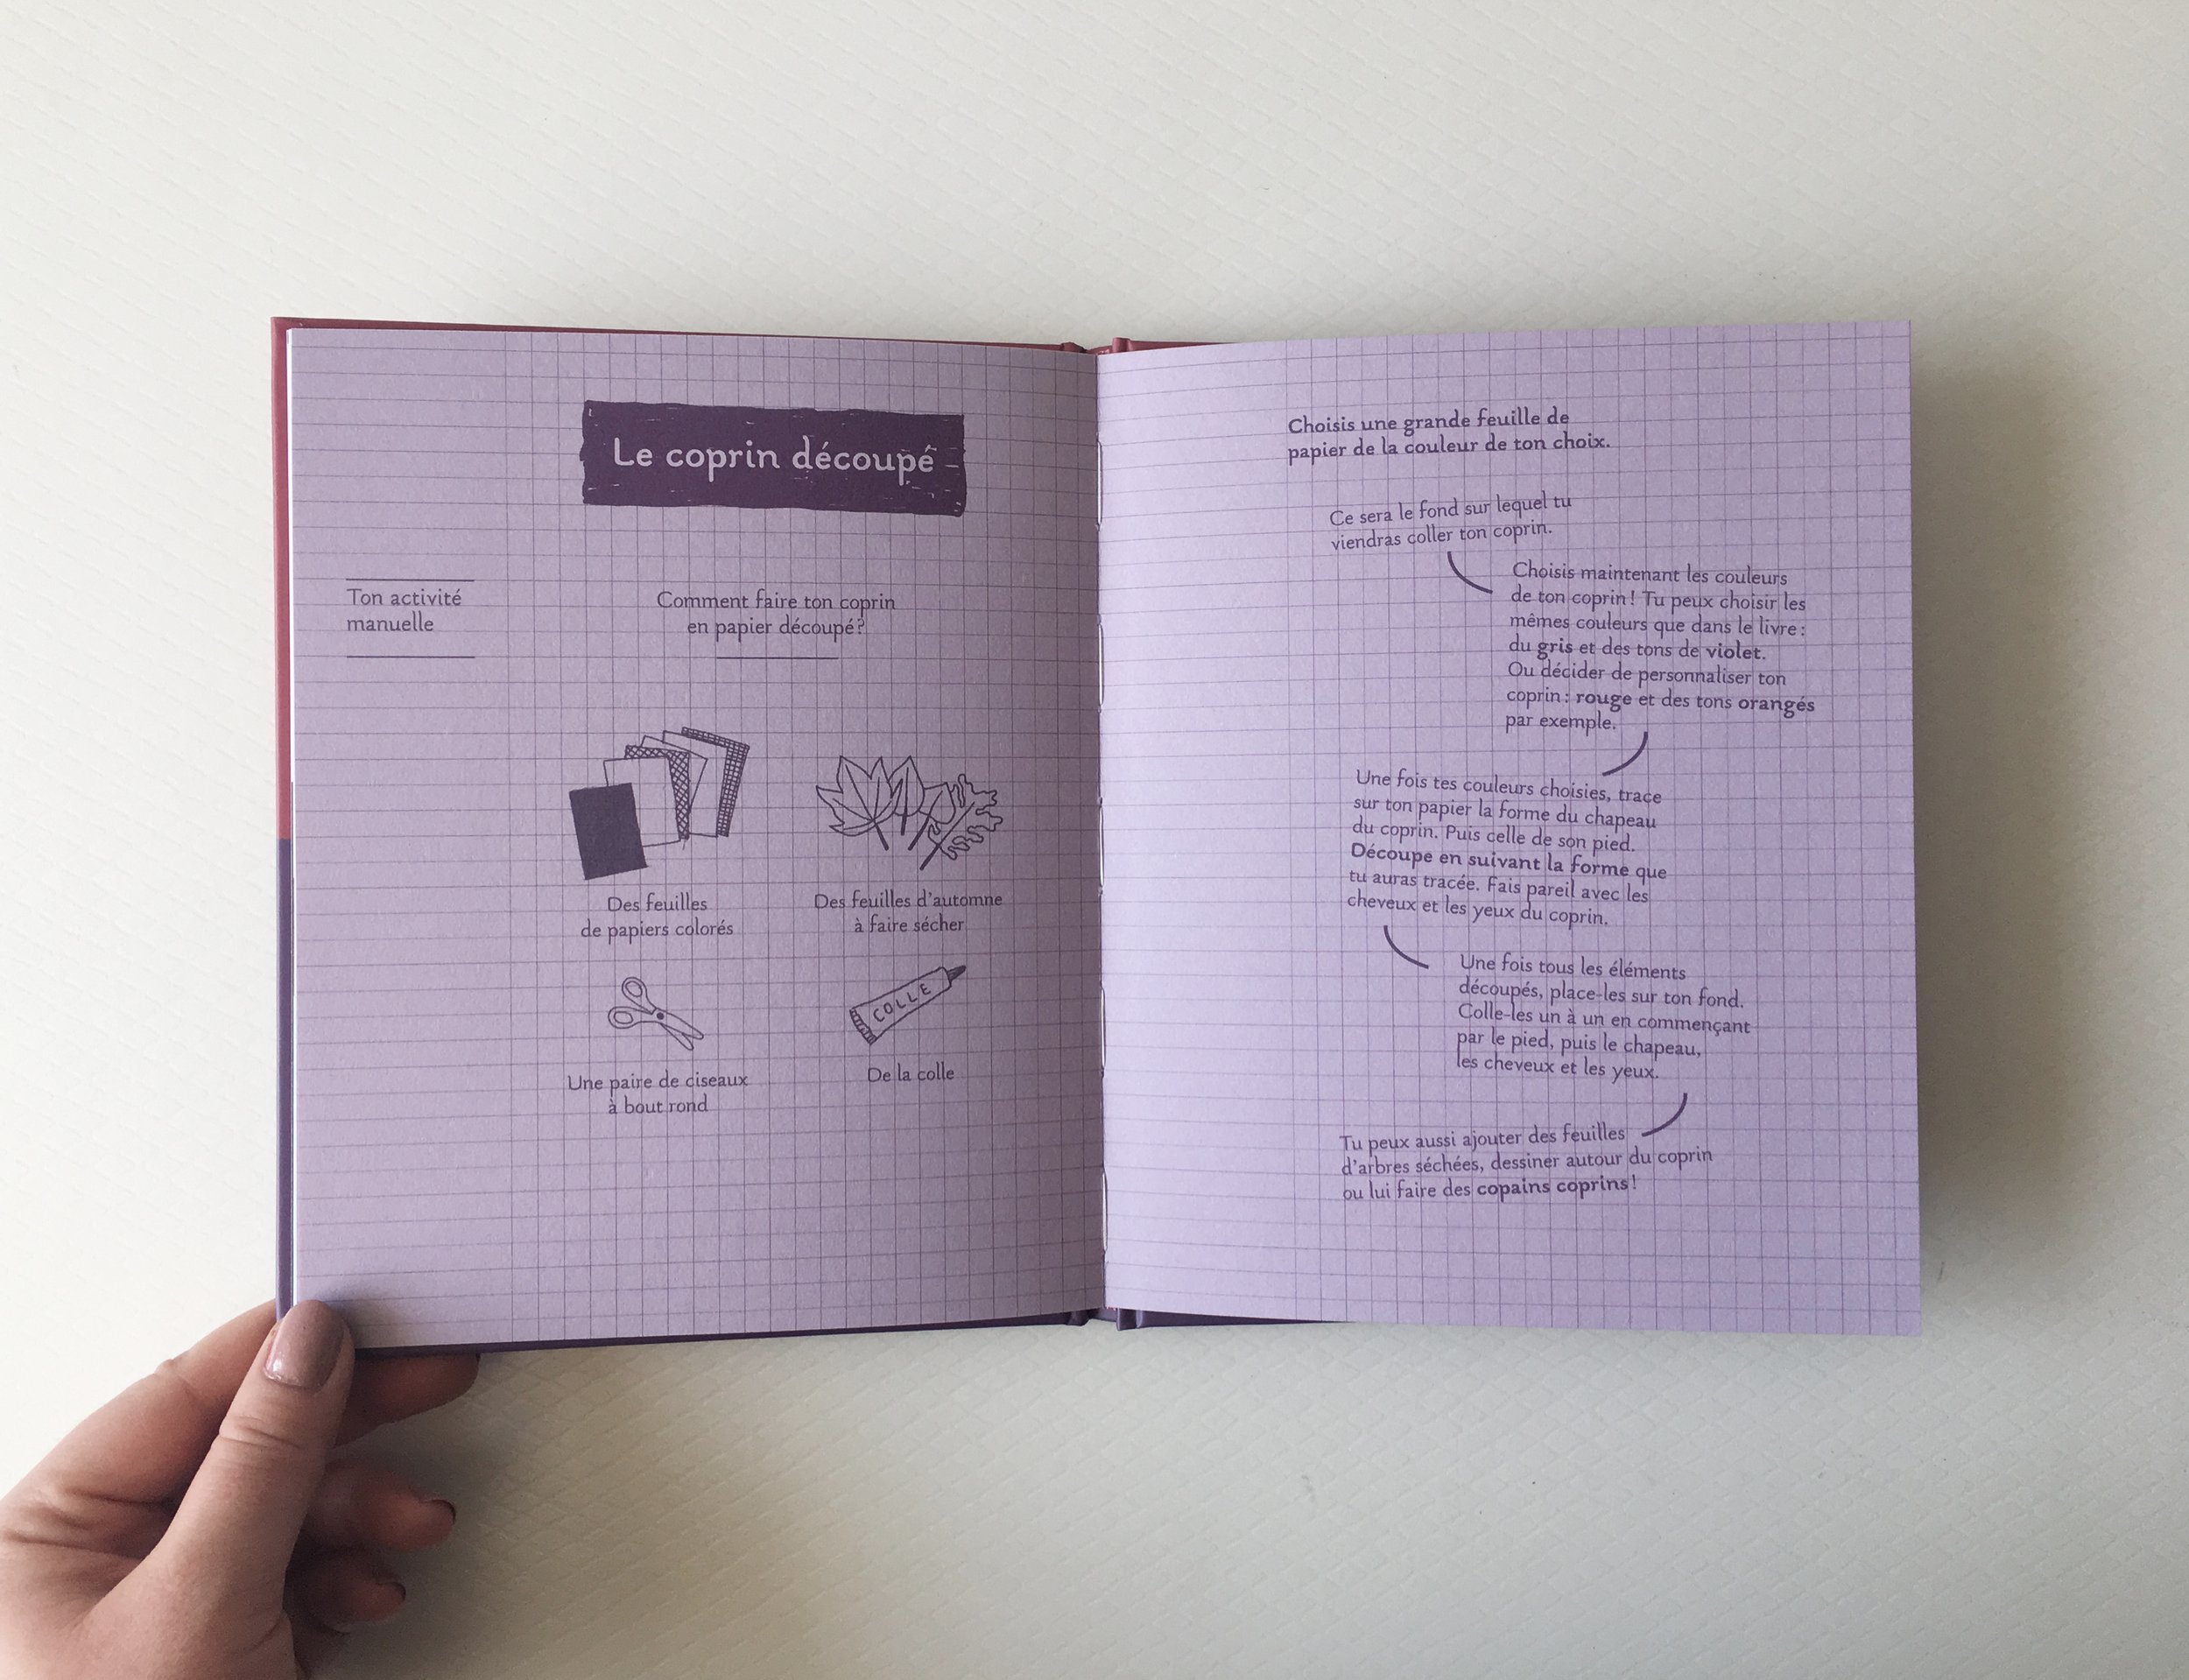 Le coprin découpé
Ton activité
manuelle
Comment faire ton coprin
en papier découpé?
Des feuilles
de papiers colorés
Des feuilles d'automne
à faire sécher
COLLE
Une paire de ciseaux
à bout rond
De la colle
Choisis une grande feuille de
papier de la couleur de ton choix.
Ce sera le fond sur lequel tu
viendras coller ton coprin.
Choisis maintenant les couleurs
de ton coprin! Tu peux choisir les
mêmes couleurs que dans le livre:
du gris et des tons de violet.
Ou décider de personnaliser ton
coprin: rouge et des tons orangés
par exemple.
Une fois tes couleurs choisies, trace
sur ton papier la forme du chapeau
du coprin. Puis celle de son pied.
Découpe en suivant la forme que
tu auras tracée. Fais pareil avec les
cheveux et les yeux du coprin.
Une fois tous les éléments
découpés, place-les sur ton fond.
Colle-les un à un en commençant
par le pied, puis le chapeau,
les cheveux et les yeux.
Tu peux aussi ajouter des feuilles
d'arbres séchées, dessiner autour du coprin
ou lui faire des copains coprins!